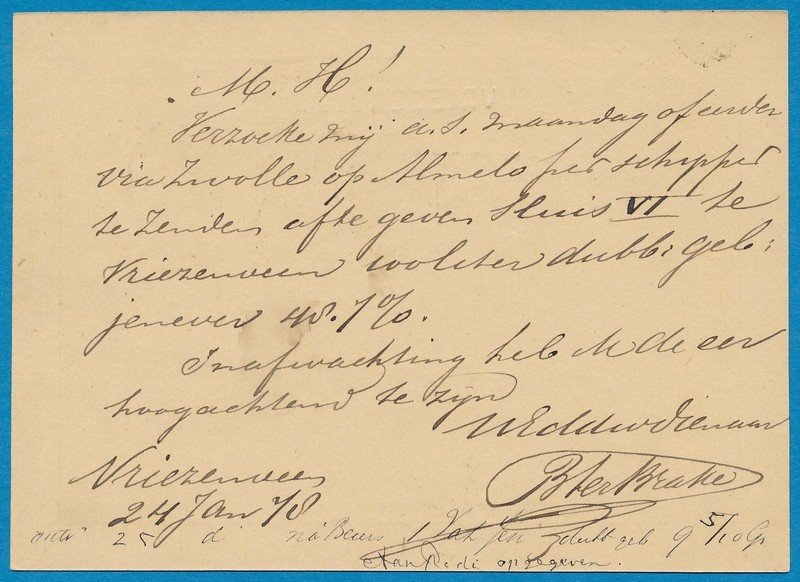 M. H!
Verzoeke mij a.s. maandag of eerder
via Zwolle op Almelo per schipper
te zenden afte geven Sluis VI te
Vriezenveen dubb: geb:
jenever 48.7%.
In afwachting heb de eer
hoogachtend te zijn
UEd dw dienaar
BterBrake
Vriezenveen
24 Jan 78
25 d na Beurs 1 dubb geb 9 5/10 G
Aan opgegeven.